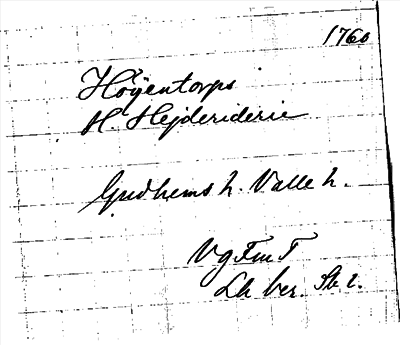 1760
Höijentorps
H. Hejderiderie
Gudhems h. Valle h.
Vg Fm T
Lh ber.